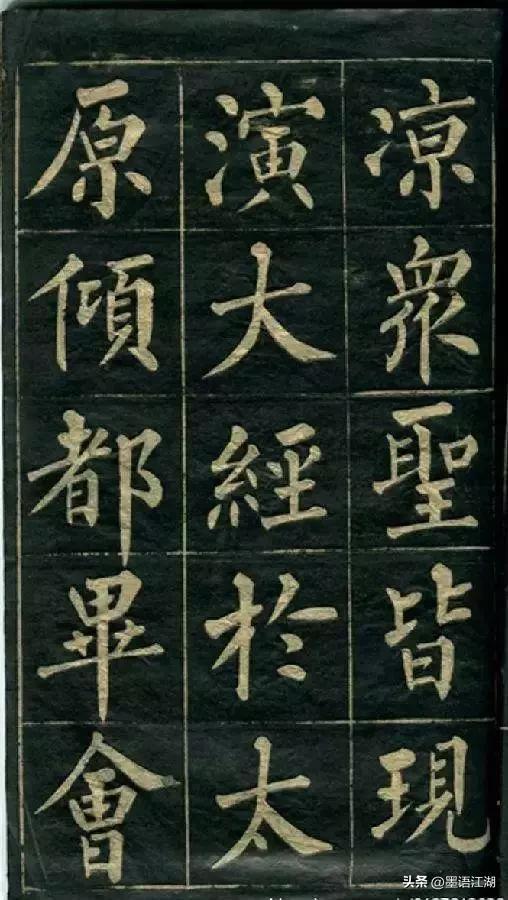 凉衆聖皆現
演大經於太
原傾都畢會
头条 @墨语江湖